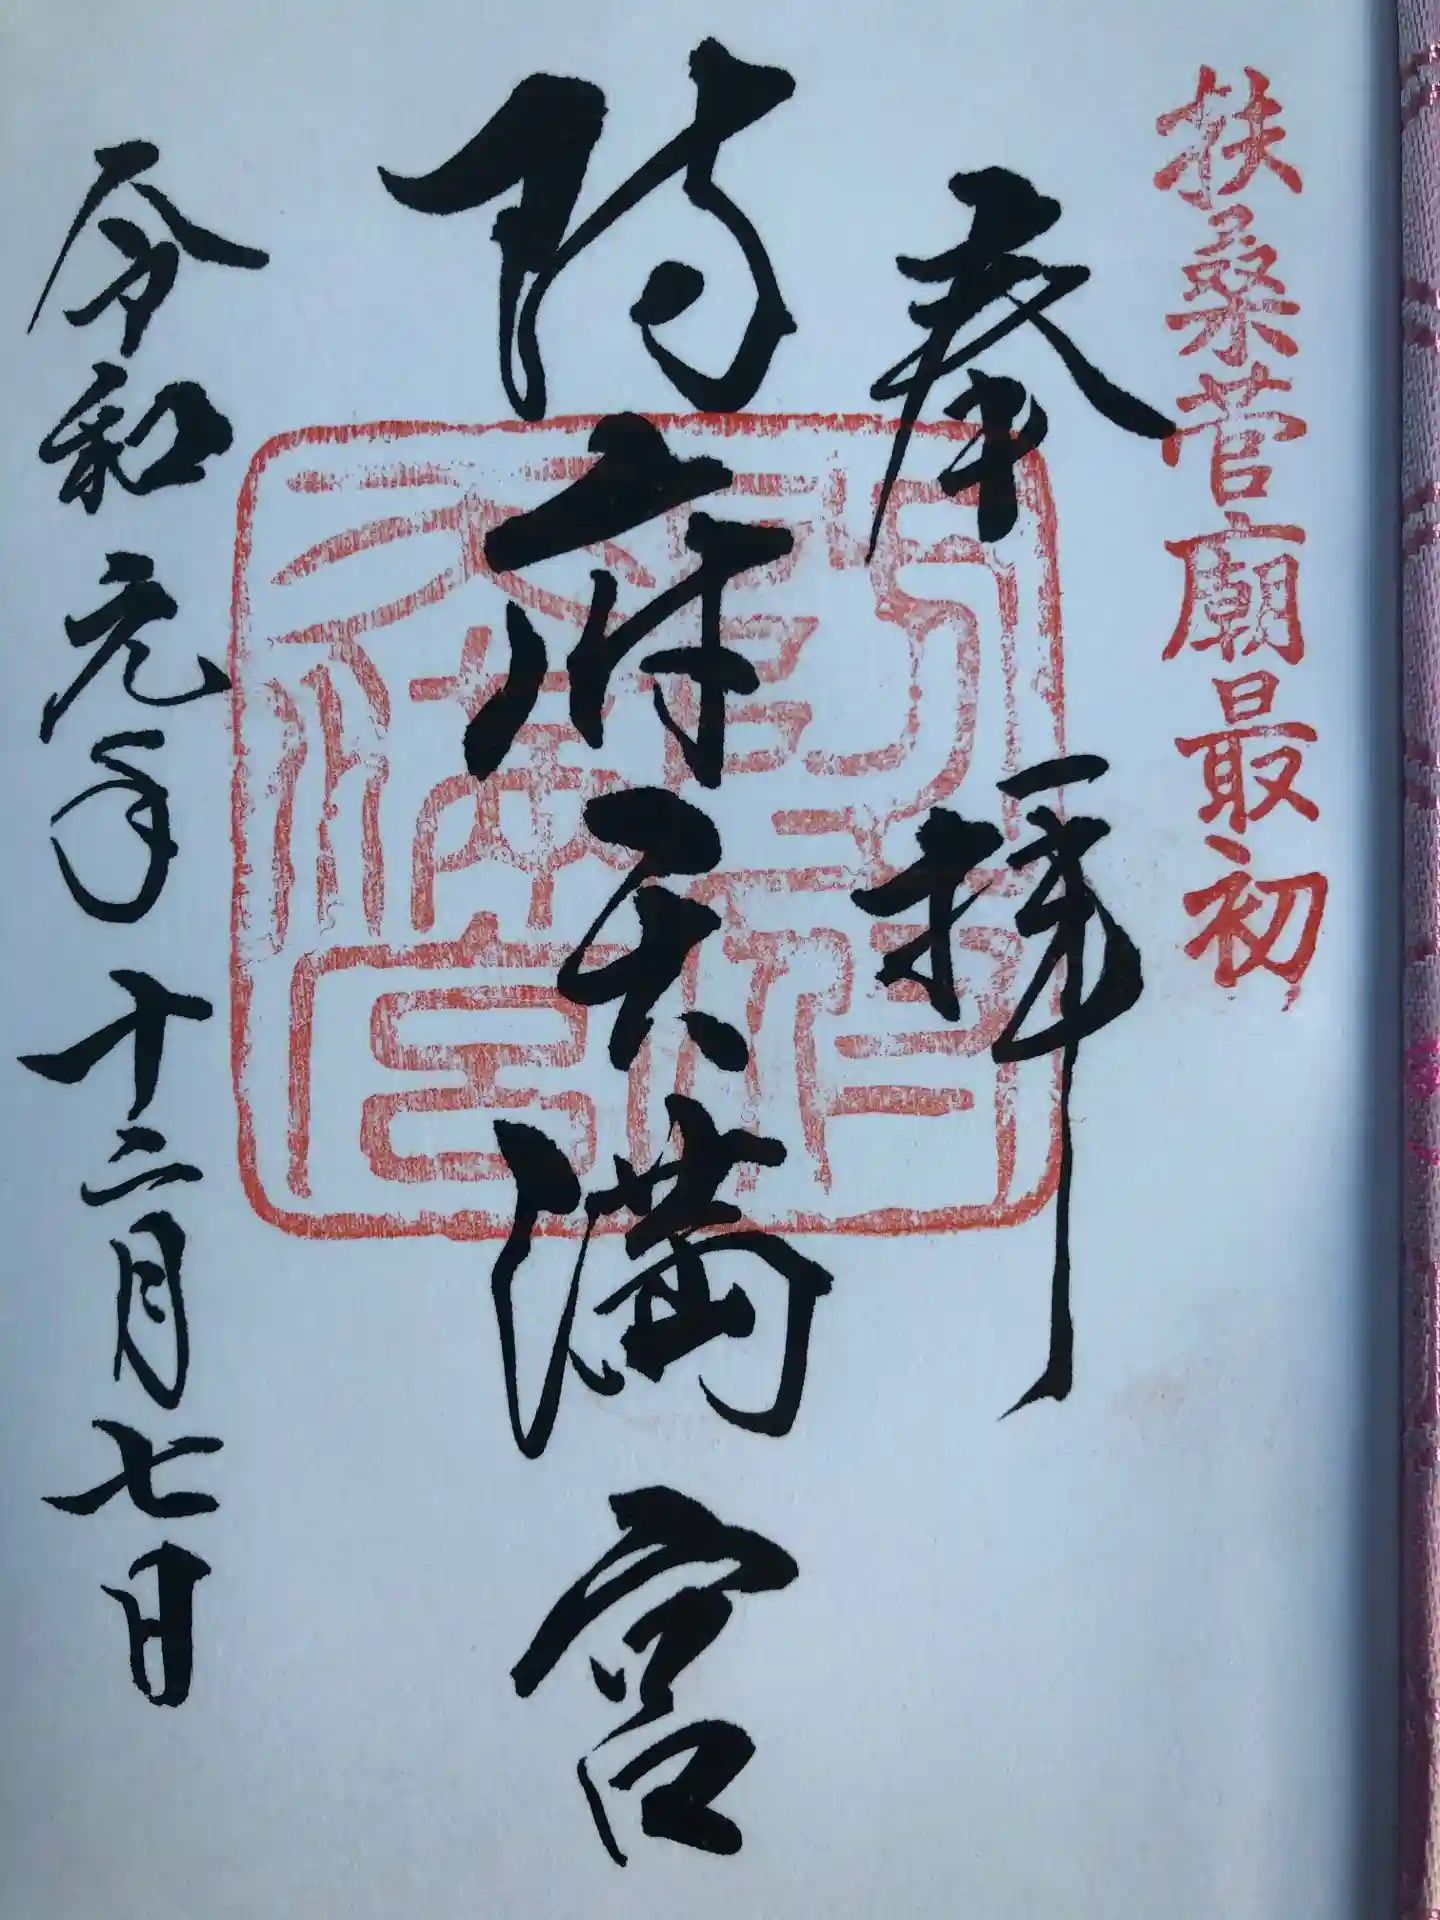 扶桑菅廟最初
奉拝
防府天満宮
令和元年十二月七日